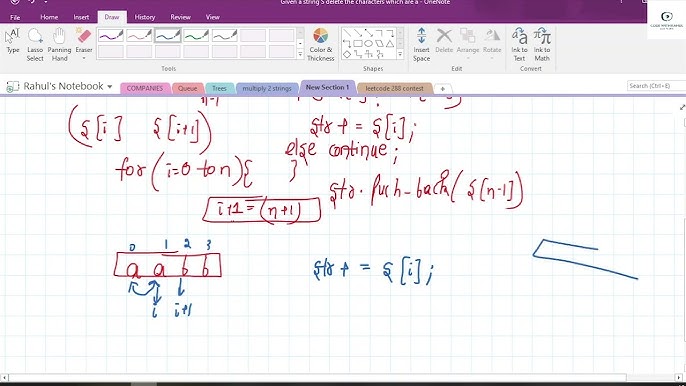 Given a string S delete the characters which are a - OneNote
File Home Insert Draw History Review View
Type Lasso Select Panning Hand Eraser
Color & Thickness Shapes Insert Space Delete Arrange Rotate Ink to Text Ink to Math
Tools Shapes Edit Convert
Rahul's Notebook COMPANIES Queue Trees multiply 2 strings New Section 1 leetcode 288 contest +
Search (Ctrl+E)
(S[i] S[i+1])
str + = S[i];
else continue;
for(i=0 to n){ }
str.push-back(S[n-1])
i+1 = (n+1)
0 1 2 3
a a b b
i i+1
str + = S[i];